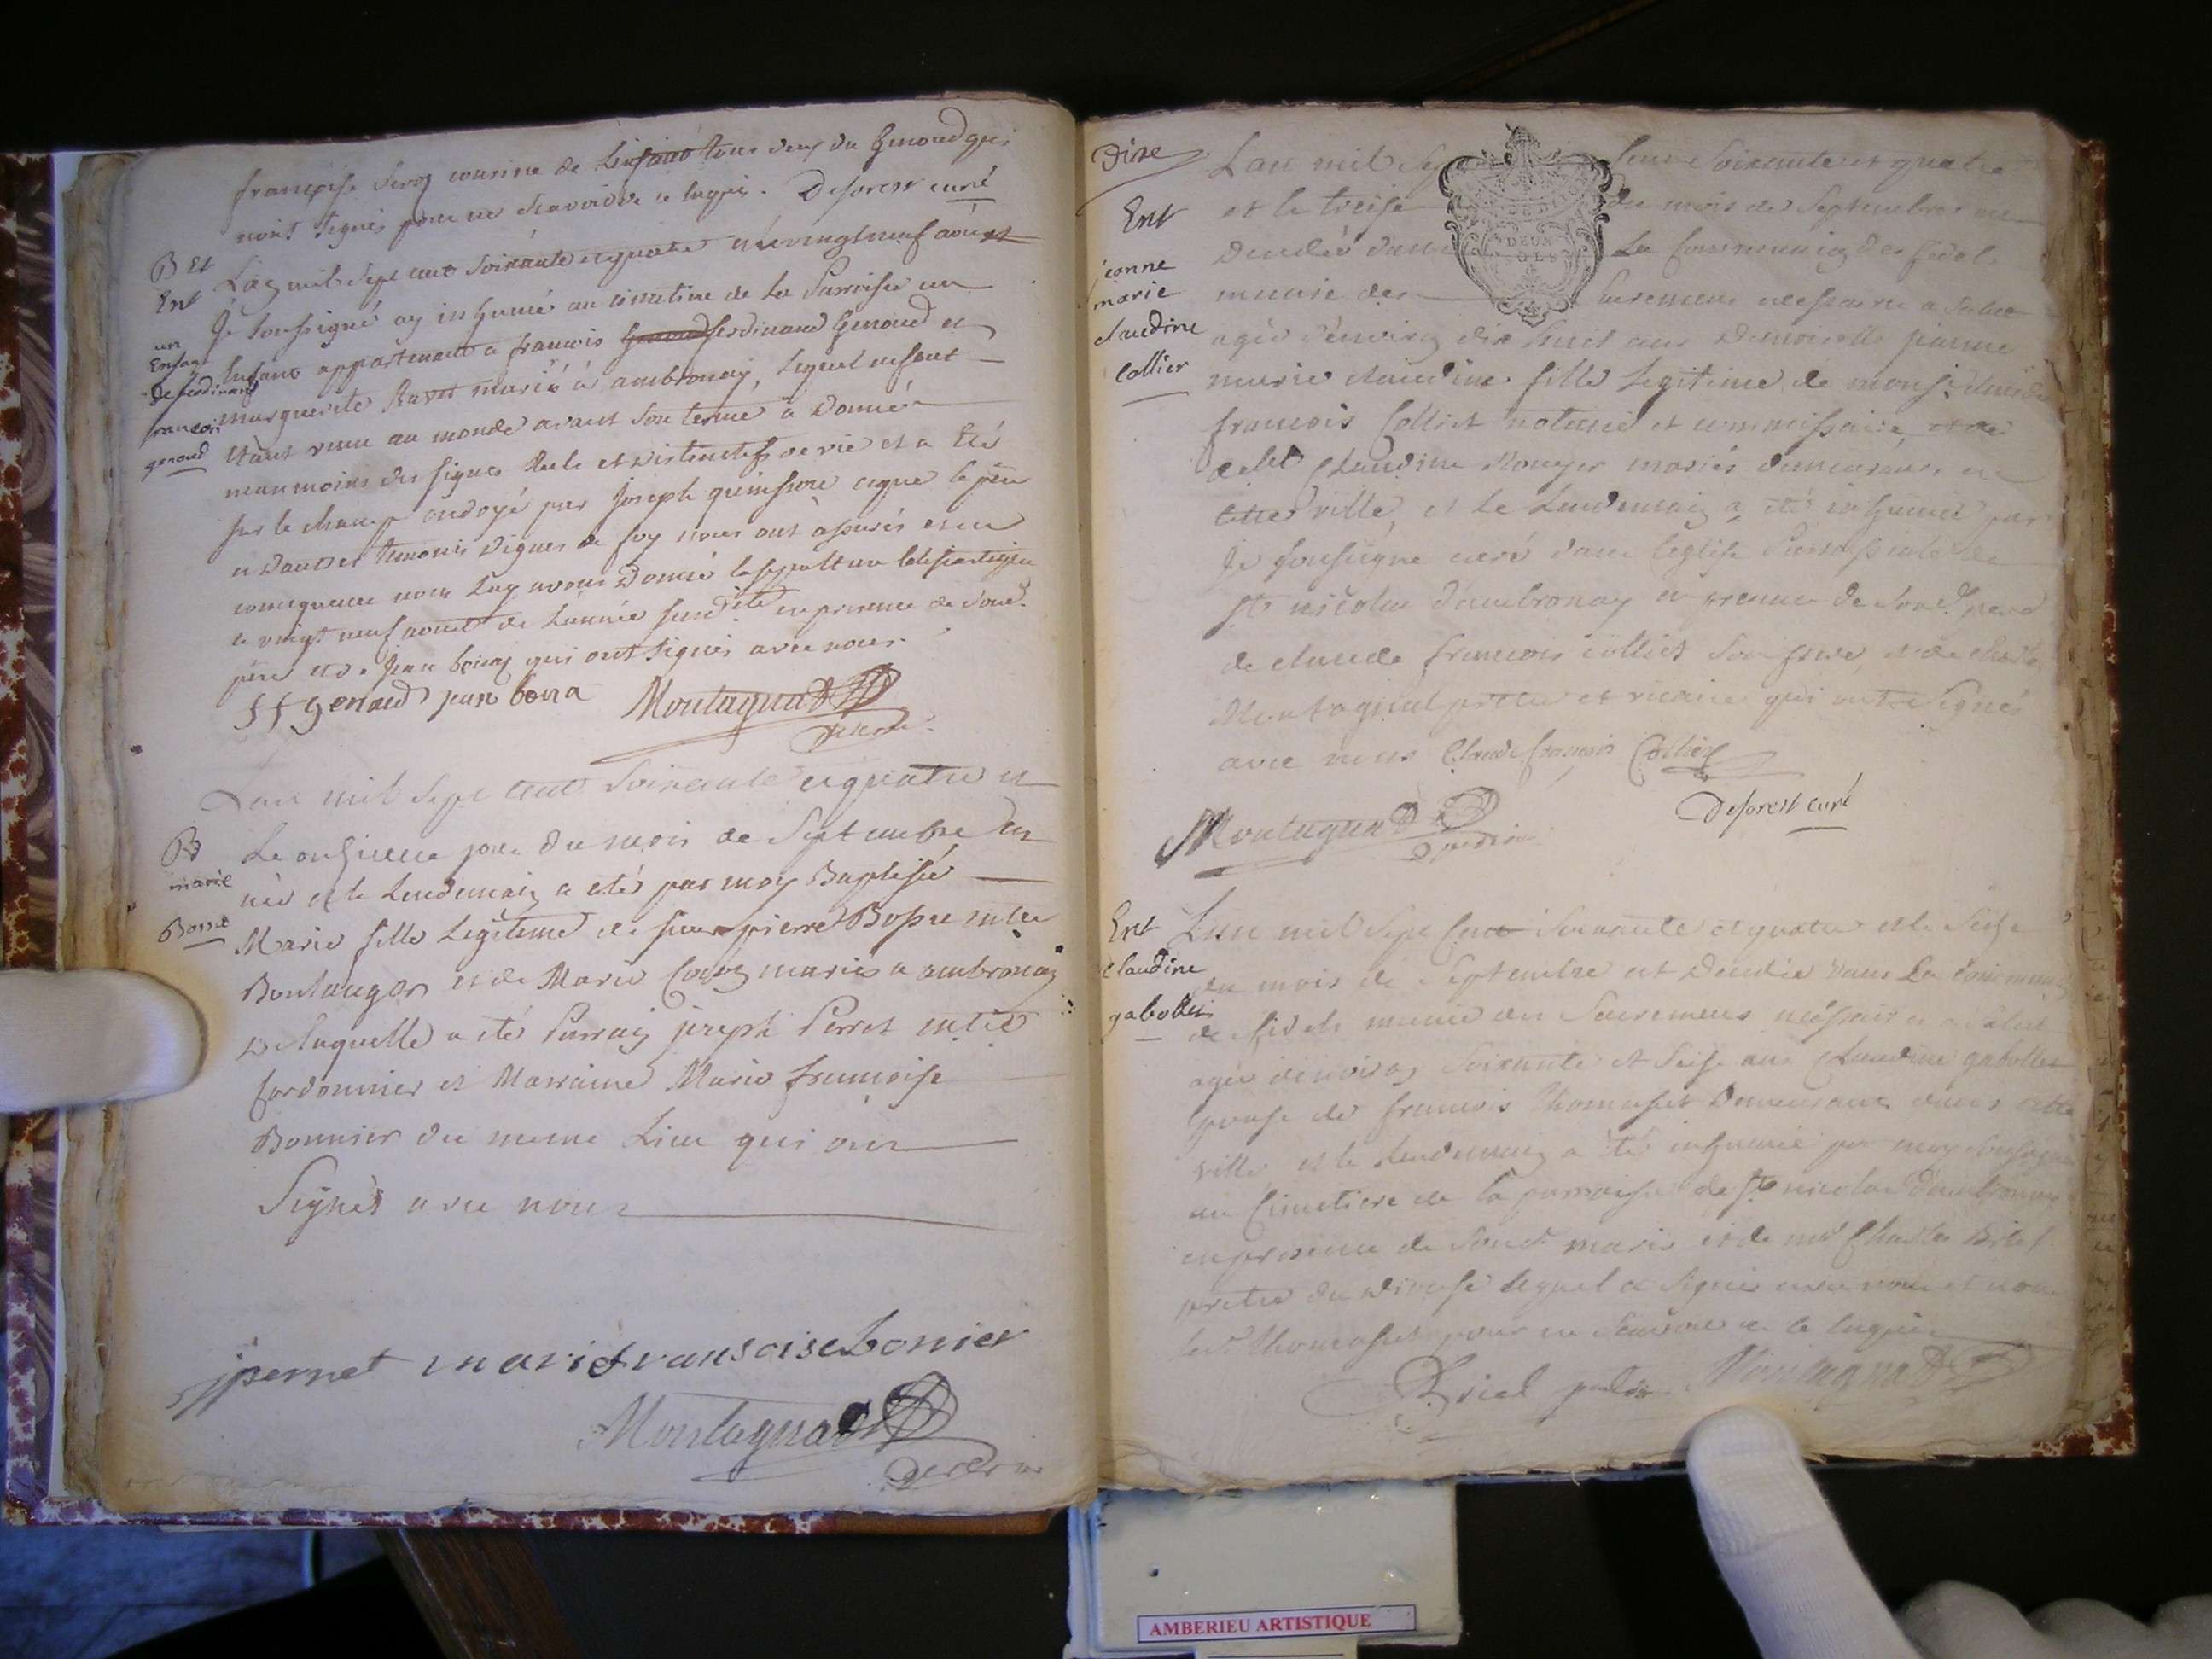 françoise cousine de tous deux du Genoud qui
nont signés pour ne scavoir de ce enquis. Deforest curé
B Et
Ent
un
Enfant
de ferdinand
francois
genoud
L'an mil sept cent soixante et quatre et le vingt neuf aôust
Je soussigné ay inhumé au cimetiere de la Parroisse un
Enfant appartenant a francois ferdinand Genoud et
marguerite Ravet mariés à ambronay, lequel enfant
étant venu au monde avant son terme a donné
neanmoins des signes réels et distinctifs de vie et a été
sur le champ ondoyé par Joseph que le père
et d'autres temoins dignes de foy nous ont assurés en
consequence nous luy avons donné la sepulture
le vingt neuf aoust de l'année susdite en presence de soud.
père et de Jean qui ont signés avec nous.
ff genoud jean bona Montagnat
B
marie
Bosse
Lan mil sept cent soixante et quatre et
Le onzieme jour du mois de Septembre est
née et le lendemain a été par moy Baptisée
Marie fille legitime de sieur pierre Bosse mtre
Boulanger et de Marie mariés a ambronay
de laquelle a été Parrain joseph Perret mtre
Cordonnier et Marraine Marie françoise
Bonnier du meme Lieu qui ont
Signés avec nous
jpernet marie fransoise bonier
Montagnat
Dixe
Ent
jeanne
marie
claudine
Collier
DEUX
SOLS
L'an mil sept cent soixante et quatre
et le treise du mois de Septembre est
Decedée dans La Communion des fidels
munie des sacremens necessaires a salut
agée d'environ dix huit ans Demoiselle jeanne
marie claudine fille legitime de claude
francois Colliet notaire et commissaire, et de
Claudine Rouger mariés demeurans en
cette ville, et le lendemain a été inhumée par
Je soussigné curé dans l'eglise Parroissiale de
St nicolas d'ambronay en presence de soud. pere
de claude francois colliet son frere, et de
Montagnat prêtre et vicaire qui ont Signés
avec nous Claude francois Colliex
Montagnat
Deforest curé
Ent
claudine
gabollet
L'an mil sept cent soixante et quatre et le seise
du mois de Septembre est decedée dans La communion
de fidels munie des Sacremens necessaires a salut
agée denviron soixante et seise ans Claudine gabollet
epouse de francois Thomasset Demeurant dans cette
ville et le lendemain a été inhumée par moy soussigné
au Cimetiere de la parroisse de St nicolas d'ambronay
en presence de soud. maris et de mre Charles
pretre du diocese lequel a signé avec nous et non
led. Thomasset pour ne scavoir de ce enquis
prêtre Montagnat
AMBERIEU ARTISTIQUE